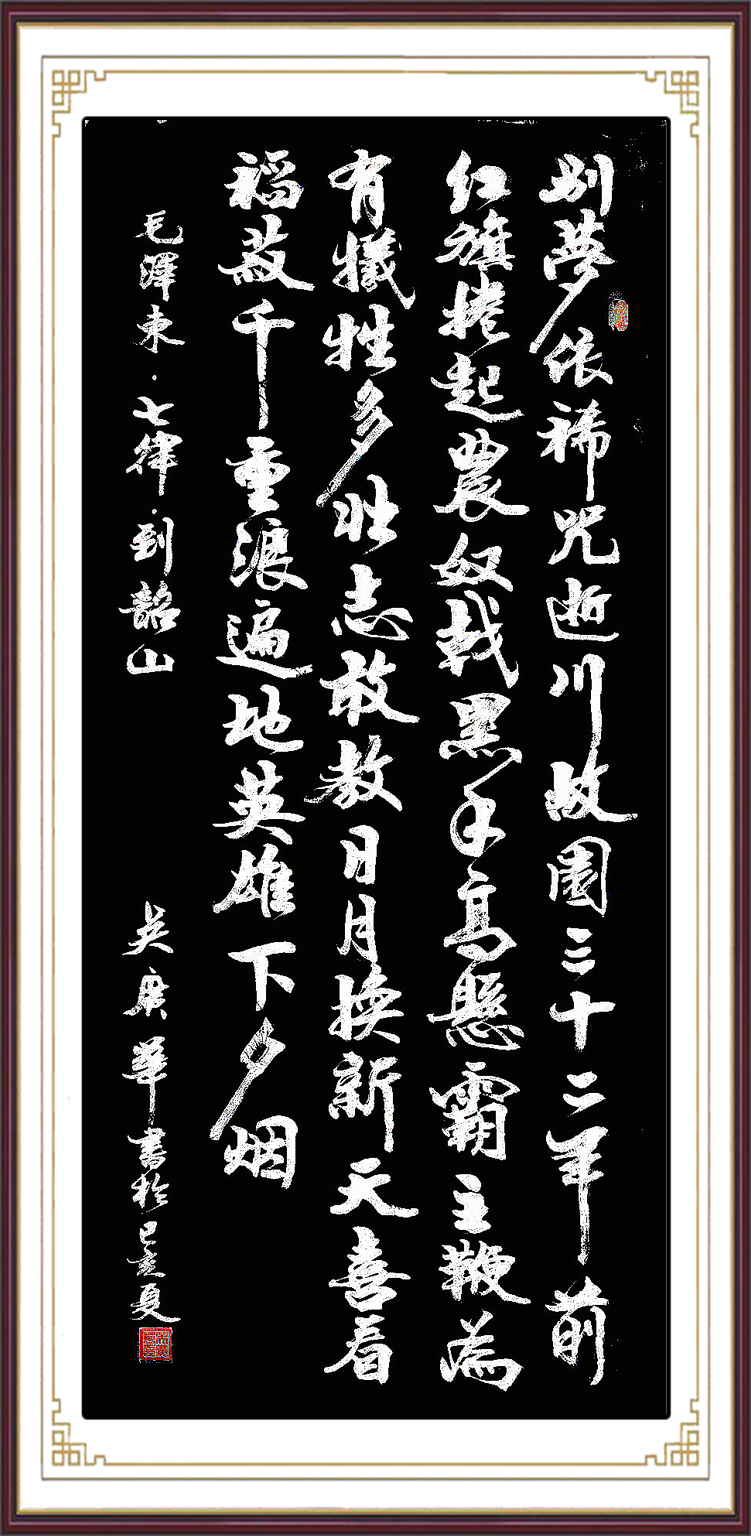 别夢依稀咒逝川故園三十二年前
红旗捲起農奴戟黑手高懸霸主鞭為
有犧牲多壮志敢教日月换新天喜看
稻菽千重浪遍地英雄下夕烟
毛澤东·七律·到韶山
吴庚華書於己亥夏